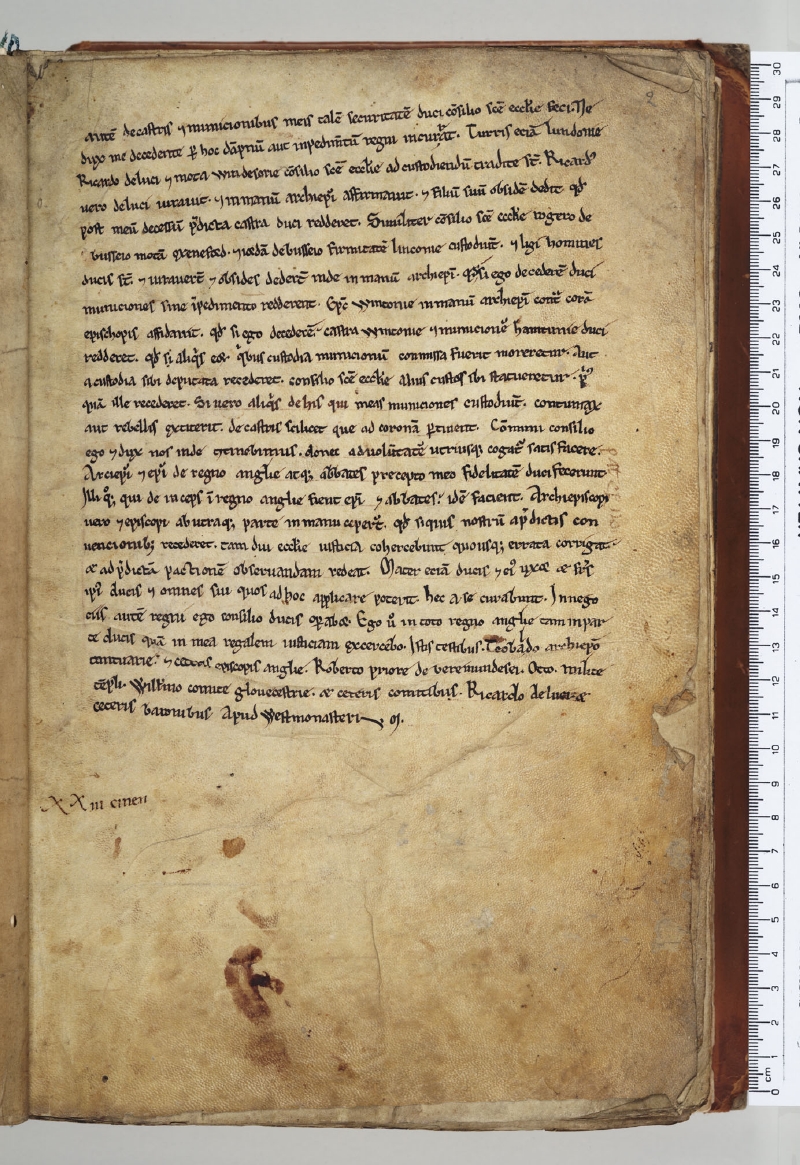 2
autē de castris ⁊ municionibus meis talē securitatē duci cōsilio scē ecclie feci. Ne
dux me decedente ꝑ hoc dāpnū aut inpedimtū regni incurrat. Turris eciā lundonie
Ricardo de luci ⁊ mota Windesorie cōsilio scē ecclie ad custodiendū tradite st̄. Ricard᷒
uero de luci iurauit. ⁊ in manū archiepi affirmauit. ⁊ filiū suū obsidē dedit qd̄
post meū decessū p̄dicta castra duci redderet. Similiter cōsilio scē ecclie rogero de
busseio motā oxeneford. ⁊ iordā de busseio firmitatē lincornie custodiūt. ⁊ ligi homines
ducis st̄. ⁊ iurauert̄ ⁊ obsides dedert̄ inde in manū archiepi. qd̄ si ego decederē duci
municiones sine īpedimento redderent. Epc̄ Wintonie in manū archiepi corā
episcopis affidauit. qd̄ si ego decederē castra Wintonie ⁊ municionē hamtunie duci
redderet. qd̄ si aliq̇s eoꝝ q̇bus custodia municionū commissa fuerit moreretur. Aut
a custodia sibi deputata recederet. consilio scē ecclie alius custos ibi statueretur. p᷒
quā ille recederet. Si uero aliq̇s de his qui meas municiones custodiūt. contumax
aut rebellis extiterit. de castris scilicet que ad coronā ꝑtinent. Cōmuni consilio
ego ⁊ dux nos inde ꝯtinebimus. donec ad uolūtatē utriusq; cogat᷑ satisfacere.
Arciepi ⁊ epi de regno anglie atq; abbates precepto meo fidelitatē duci fecerunt
Illi q;. qui de inceps ī regno anglie fient epi ⁊ abbates: idē facient. Archiepiscopi
uero ⁊ episcopi ab utraq; parte in manu cepert̄. qd̄ si quis nostrū a p̄dictis con
uencionib; recederet. tam diu ecclie iusticia cohercebunt quousq; errata corrigat.
⁊ ad p̄dictā pactionē obseruandam redeat. Mater eciā ducis ⁊ ei᷒ uxor ⁊ fr̄s
ipi᷒ ducis ⁊ omnes sui quos ad hoc applicare poterit. hec a se curabunt. In nego
ciis autē regni ego consilio ducis opabor. Ego ū in toto regno anglie tam in par
te ducis quā in mea regalem iusticiam excercebo. Istis testibus. Teobaldo archiepo
cantuarie. ⁊ ceteris episcopis anglie. Roberto priore de beremundesei. Otto. milite
tēpli. Willmo comite glouecestrie. ⁊ ceteris comitibus. Ricardo de luci ⁊
ceteris baronibus Apud Westmonasteriū
XXIII
cm 0 1 2 3 4 5 6 7 8 9 10 11 12 13 14 15 16 17 18 19 20 21 22 23 24 25 26 27 28 29 30